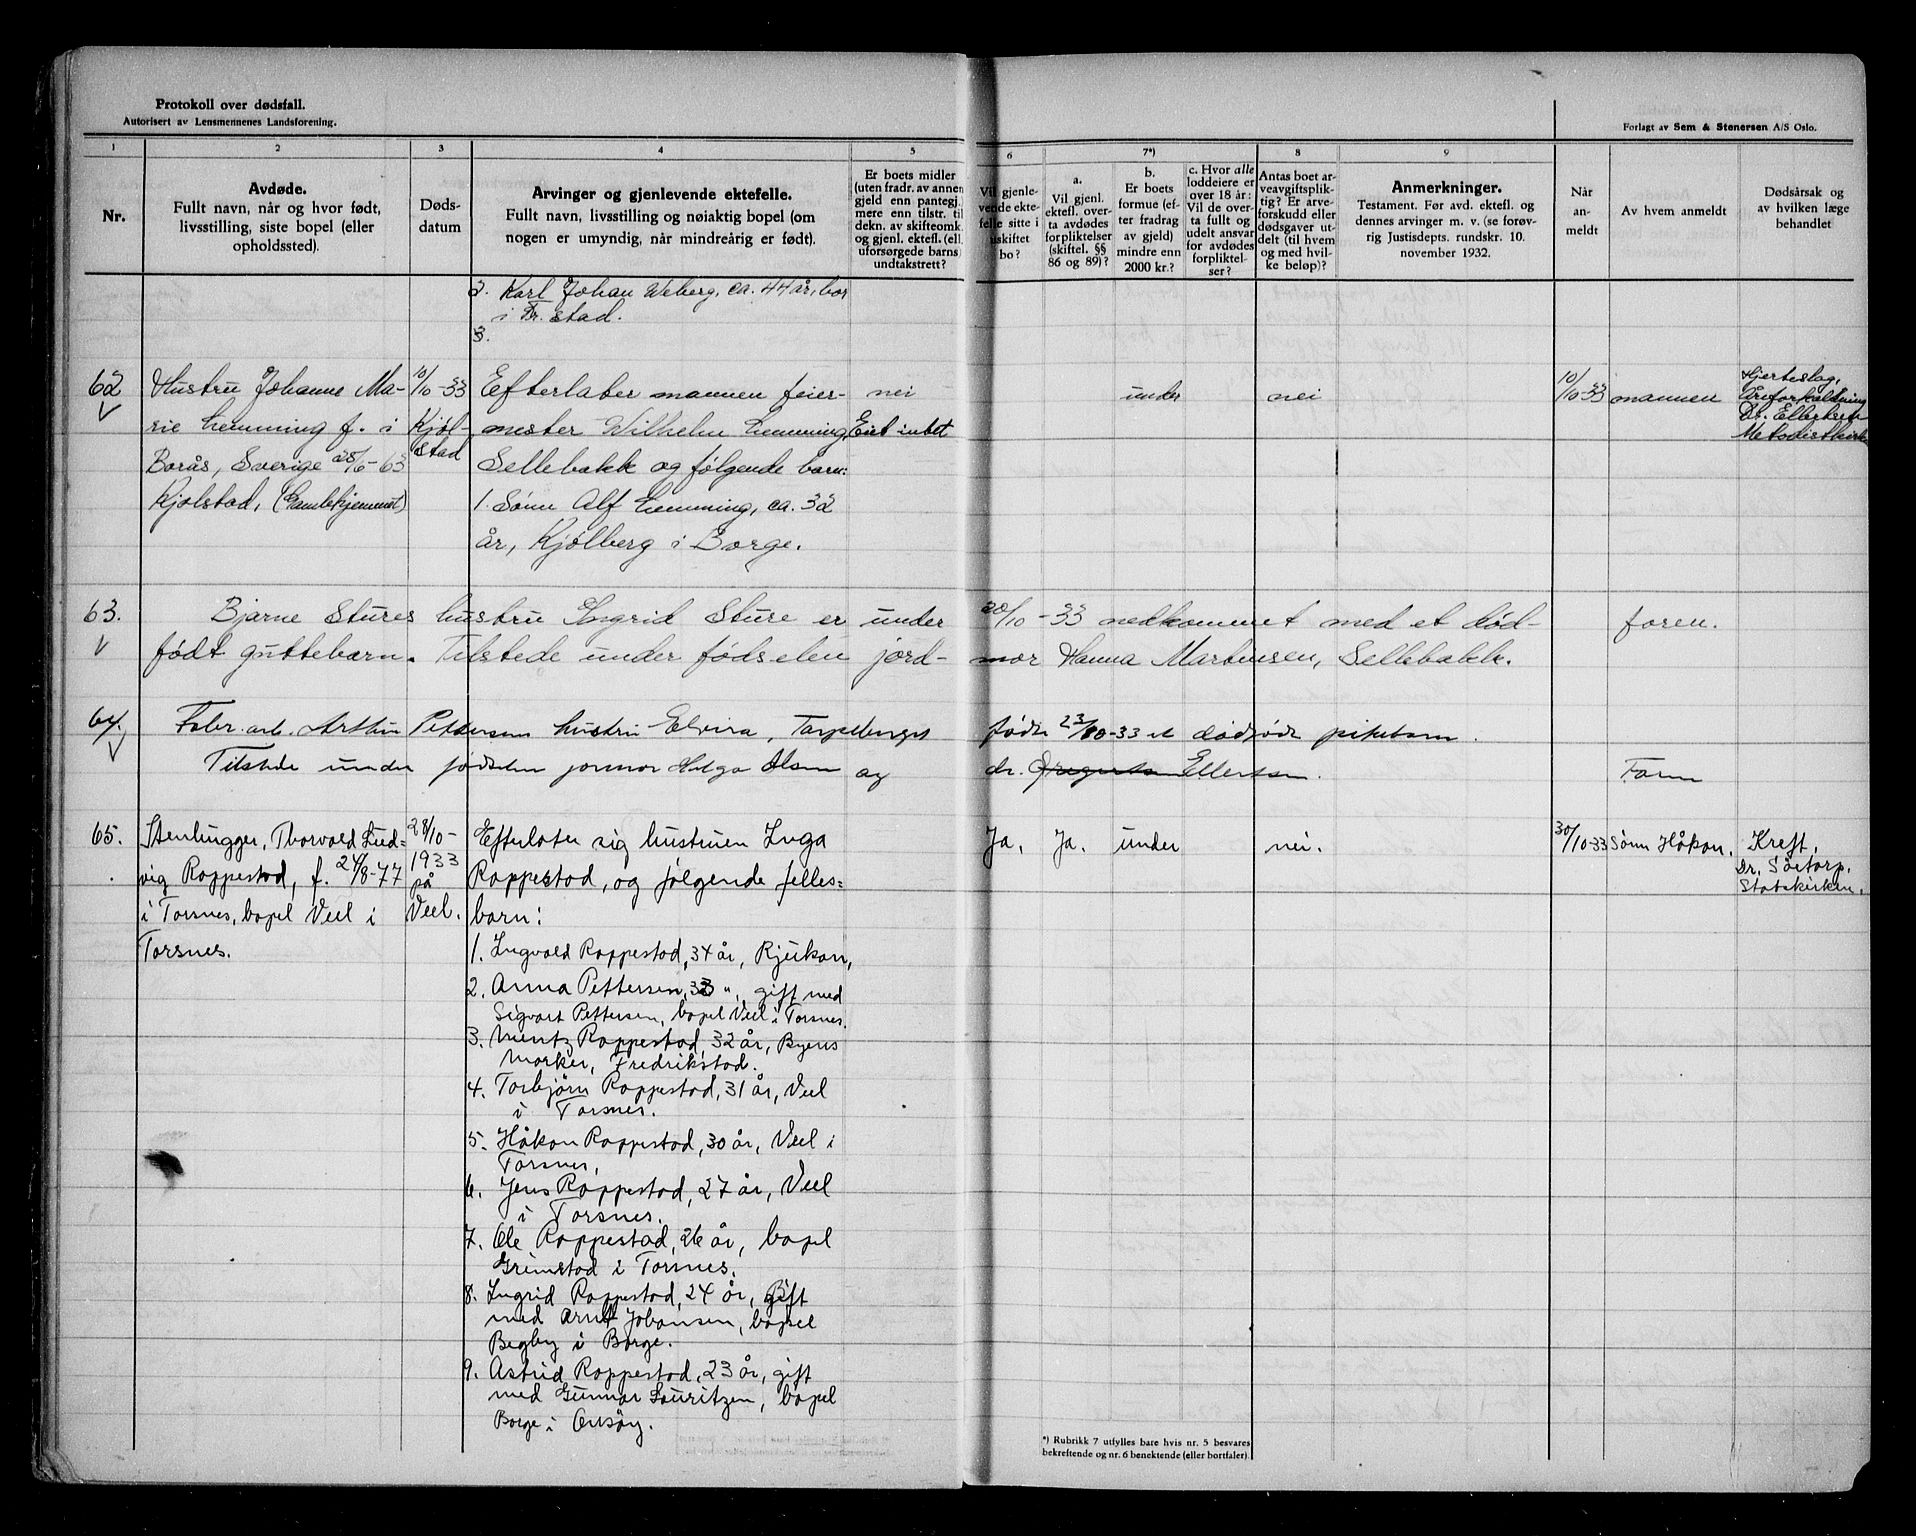 Protokoll over dødsfall.
Autorisert av Lensmennenes Landsforening.
Forlagt av Sem & Stenersen A/S Oslo.
1 2 3 4 5 6 7*) 8 9
Nr.
Avdøde.
Fullt navn, når og hvor født,
livsstilling, siste bopel (eller
opholdssted).
Døds-
datum
Arvinger og gjenlevende ektefelle.
Fullt navn, livsstilling og nøiaktig bopel (om
nogen er umyndig, når mindreårig er født).
Er boets midler
(uten fradr. av annen
gjeld enn pantegj.)
mere enn tilstr. til
dekn. av skifteomk.
og gjenl. ektefl. (ell.
uforsørgede barns)
undtakstrett?
Vil gjenle-
vende ekte-
felle sitte i
uskiftet
bo?
a.
Vil gjenl.
ektefl. over-
ta avdødes
forpliktelser
(skiftel. §§
86 og 89)?
b.
Er boets
formue (ef-
ter fradrag
av gjeld)
mindre enn
2000 kr.?
c. Hvor alle
loddeiere er
over 18 år:
Vil de over-
ta fullt og
udelt ansvar
for avdødes
forpliktel-
ser?
Antas boet ar-
veavgiftsplik-
tig? Er arve-
forskudd eller
dødsgaver ut-
delt (til hvem
og med hvil-
ke beløp)?
Anmerkninger.
Testament. Før avd. ektefl. og
dennes arvinger m. v. (se forøv-
rig Justisdepts. rundskr. 10.
november 1932.
Når
an-
meldt
Av hvem anmeldt
Dødsårsak og
av hvilken læge
behandlet
2. Karl Johan Weberg, ca. 44 år, bor
i Fr. stad.
3.
62
Hustru Johanne Ma-
rie Lemming f. i
Borås, Sverige 28/6-63
Kjølstad, (Gamlehjemmet)
10/10-33
Kjøl-
stad
Efterlater mannen feier-
mester Wilhelm Lemming,
Sellebakk og følgende barn:
1. Sønn Alf Lemming, ca. 32
år, Kjølberg i Borge.
nei
Eiet intet
under
nei
10/10-33
mannen
Hjerteslag,
Åreforkalkning
Dr. Ellertsen
Metodistkirk
63.
Bjarne Stures hustru Ingrid Sture er under 20/10-33 nedkommet med et død-
født guttebarn. Tilstede under fødselen jord- mor Hanna Martinsen, Sellebakk.
faren.
64.
Fabr. arb. Arthur Pettersens hustru Elvira, Torpeberget fødte 23/10-33 et dødfødt pikebarn.
Tilstede under fødselen jormor Helga Olsen og dr. Ellertsen.
Faren
65.
Stenhugger, Thorvald Lud-
vig Roppestad, f. 24/8-77
i Torsnes, bopel Veel i
Torsnes.
28/10-
1933
på
Veel.
Efterlater sig hustruen Inga
Roppestad, og følgende felles=
barn:
1. Ingvald Roppestad, 34 år, Rjukan,
2. Anna Pettersen, 33 ", gift med
Sigvart Pettersen, bopel Veel i Torsnes.
3. Mentz Roppestad, 32 år, Byens
marker, Fredrikstad.
4. Torbjørn Roppestad, 31 år, Veel
i Torsnes.
5. Håkon Roppestad, 30 år, Veel i
Torsnes,
6. Jens Roppestad, 27 år, Veel
i Torsnes.
7. Ole Roppestad, 26 år, bopel
Grimstad i Torsnes.
8. Ingrid Roppestad, 24 år, gift
med Arnt Johansen, bopel
Begby i Borge.
9. Astrid Roppestad, 23 år, gift
med Gunnar Lauritzen, bopel
Borge i Onsøy.
Ja,
Ja.
under
nei.
30/10-33
Sønn Håkon.
Kreft,
Dr. Såetorp.
Statskirken,
*) Rubrikk 7 utfylles bare hvis nr. 5 besvares
bekreftende og nr. 6 benektende (eller bortfaler).